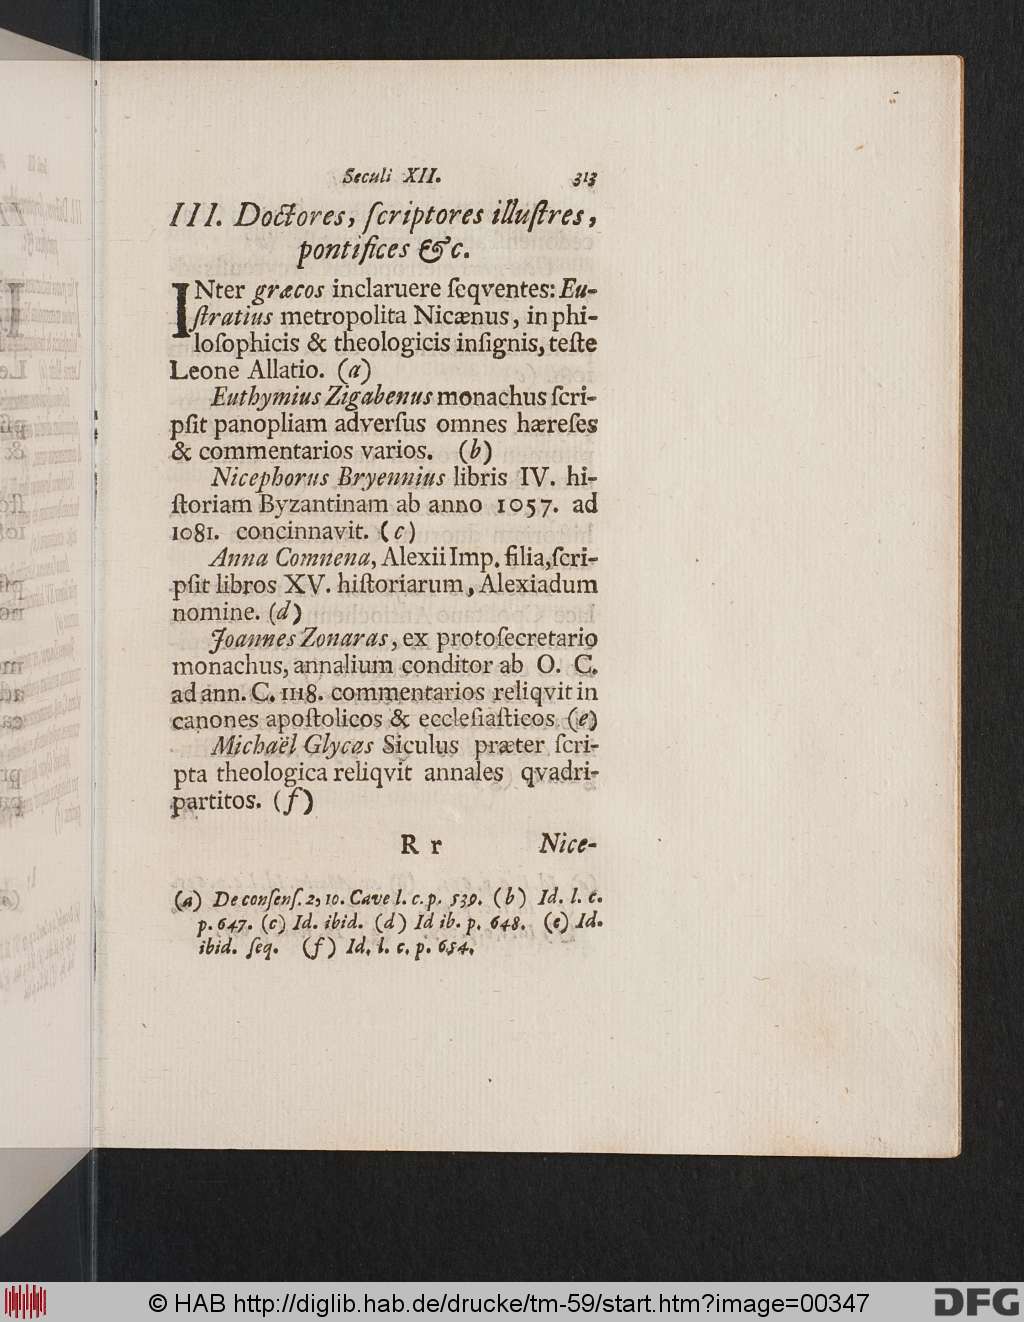 Seculi XII. 313
III. Doctores, ſcriptores illuſtres,
pontifices &c.
INter græcos inclaruere ſeqventes: Eu-
ſtratius metropolita Nicænus, in phi-
loſophicis & theologicis inſignis, teſte
Leone Allatio. (a)
Euthymius Zigabenus monachus ſcri-
pſit panopliam adverſus omnes hæreſes
& commentarios varios. (b)
Nicephorus Bryennius libris IV. hi-
ſtoriam Byzantinam ab anno 1057. ad
1081. concinnavit. (c)
Anna Comnena, Alexii Imp. filia, ſcri-
pſit libros XV. hiſtoriarum, Alexiadum
nomine. (d)
Joannes Zonaras, ex protoſecretario
monachus, annalium conditor ab O. C.
ad ann. C. 1118. commentarios reliqvit in
canones apoſtolicos & eccleſiaſticos. (e)
Michaël Glycas Siculus præter ſcri-
pta theologica reliqvit annales qvadri-
partitos. (f)
R r Nice-
(a) De conſenſ. 2, 10. Cave l. c. p. 539. (b) Id. l. c.
p. 647. (c) Id. ibid. (d) Id ib. p. 648. (e) Id.
ibid. ſeq. (f) Id. l. c. p. 654.
© HAB http://diglib.hab.de/drucke/tm-59/start.htm?image=00347
DFG